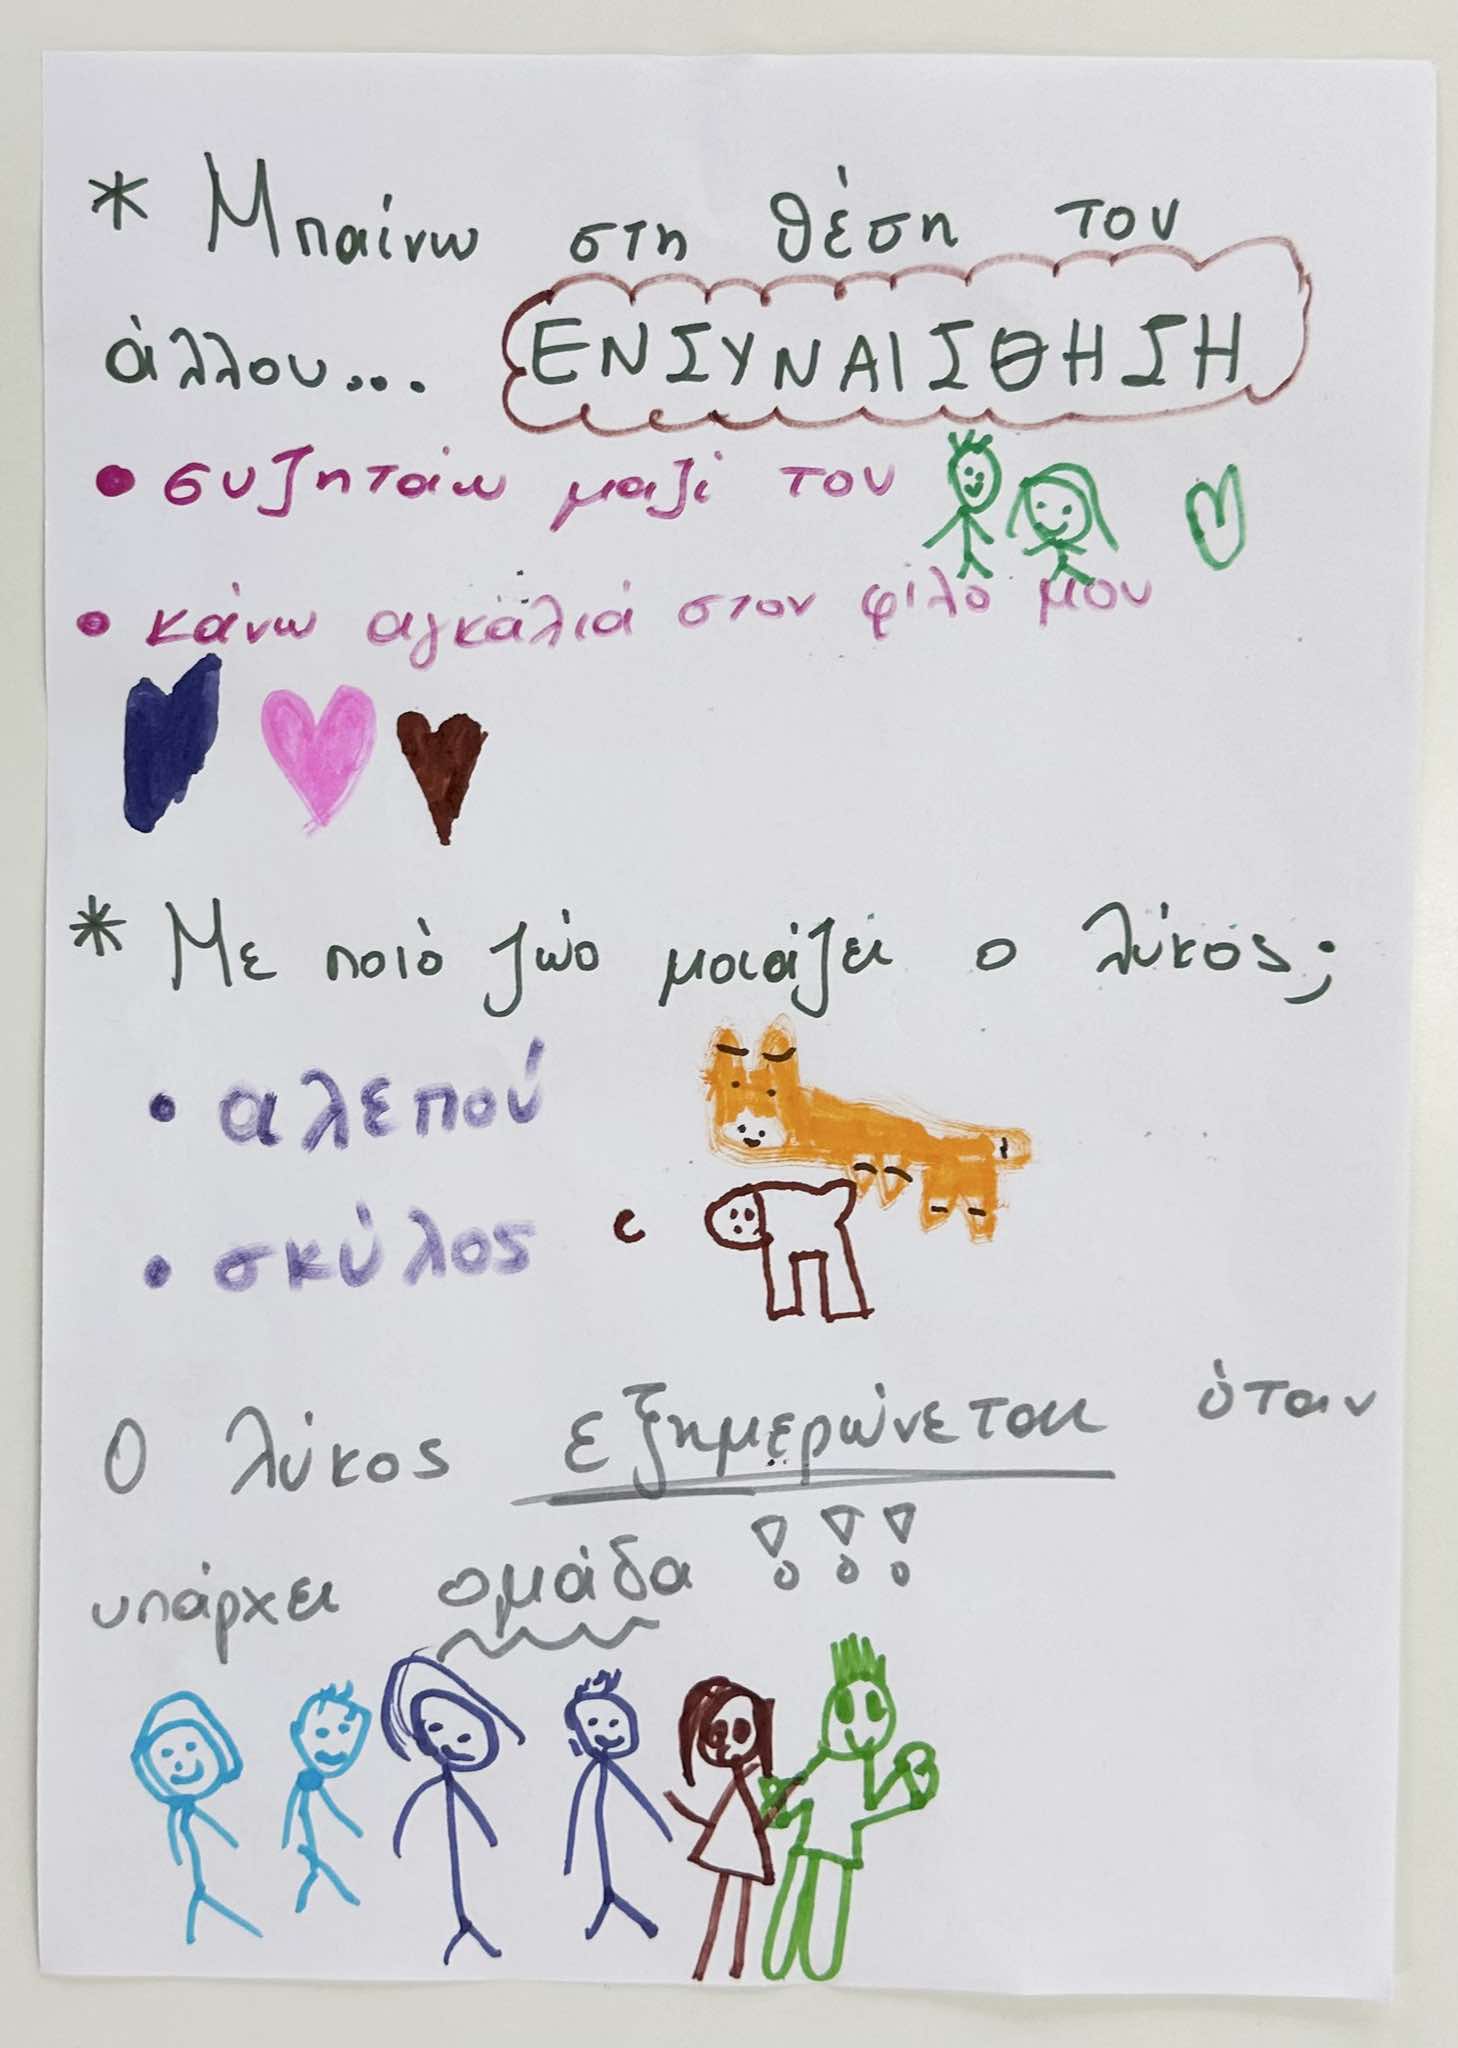 * Μπαίνω στη θέση του
άλλου... ΕΝΣΥΝΑΙΣΘΗΣΗ
• συζητάω μαζί του
• κάνω αγκαλιά στον φίλο μου
* Με ποιό ζώο μοιάζει ο λύκος;
• αλεπού
• σκύλος
Ο λύκος εξημερώνεται όταν
υπάρχει ομάδα !!!